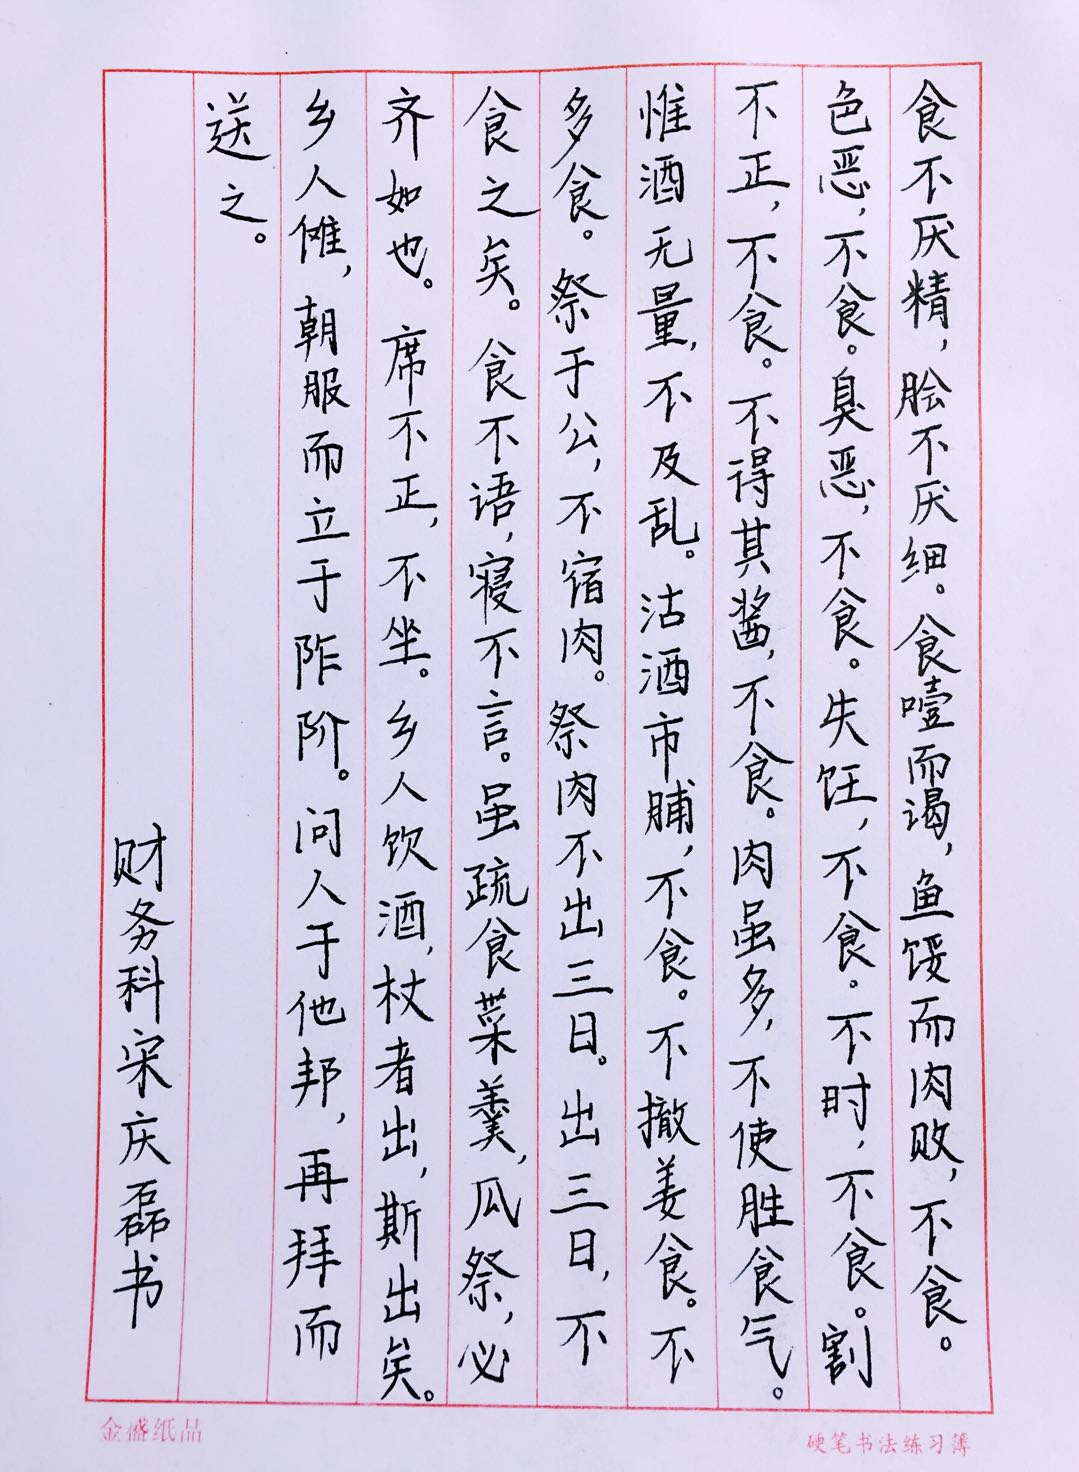 食不厌精，脍不厌细。食噎而谒，鱼馁而肉败，不食。
色恶，不食。臭恶，不食。失饪，不食。不时，不食。割
不正，不食。不得其酱，不食。肉虽多，不使胜食气。
惟酒无量，不及乱。沽酒市脯，不食。不撤姜食。不
多食。祭于公，不宿肉。祭肉不出三日。出三日，不
食之矣。食不语，寝不言。虽疏食菜羹，瓜祭，必
齐如也。席不正，不坐。乡人饮酒，杖者出，斯出矣。
乡人傩，朝服而立于阼阶。问人于他邦，再拜而
送之。
财务科宋庆磊书
金盛纸品
硬笔书法练习簿